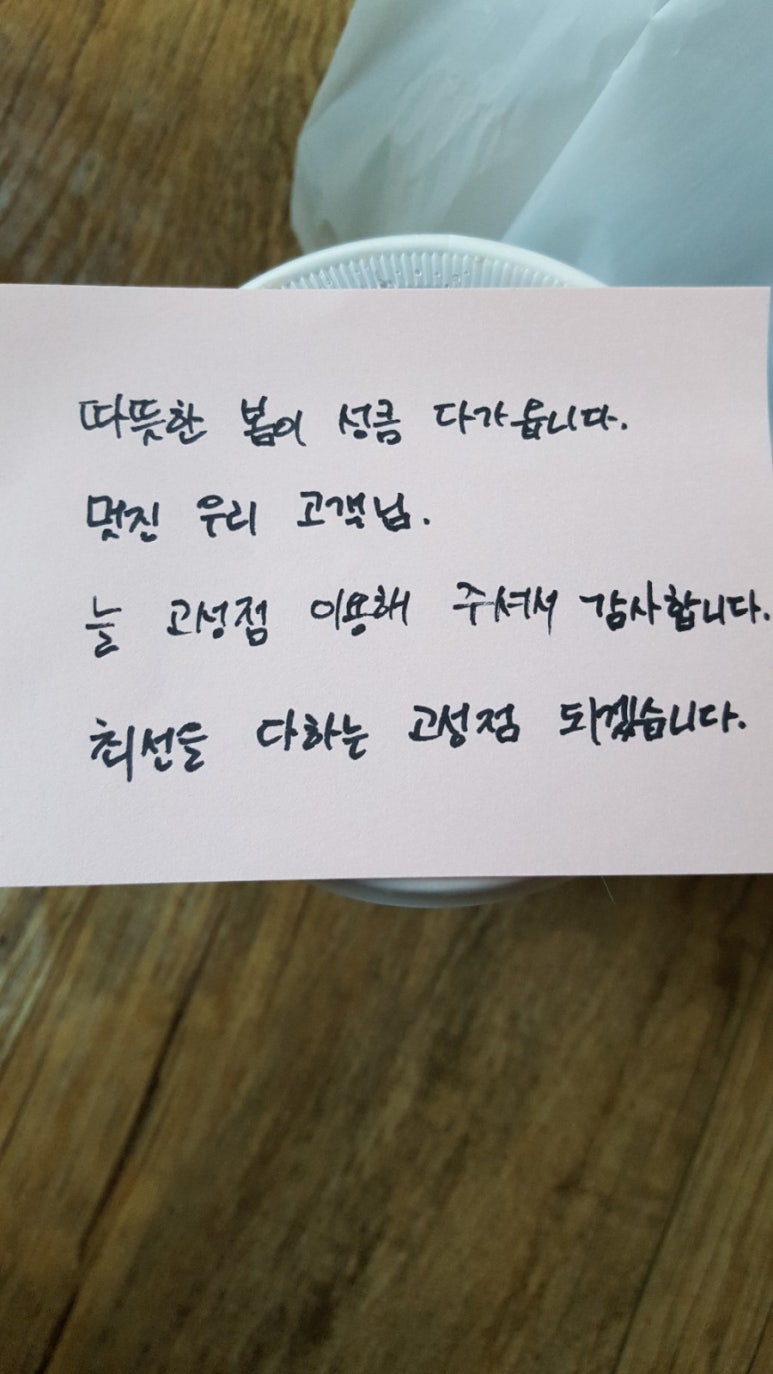 따뜻한 봄이 성큼 다가옵니다.
멋진 우리 고객님.
늘 고성점 이용해 주셔서 감사합니다.
최선을 다하는 고성점 되겠습니다.